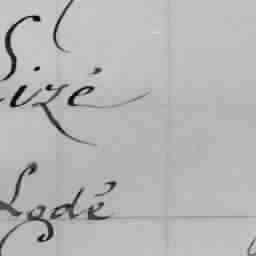 Sizé
Lodé